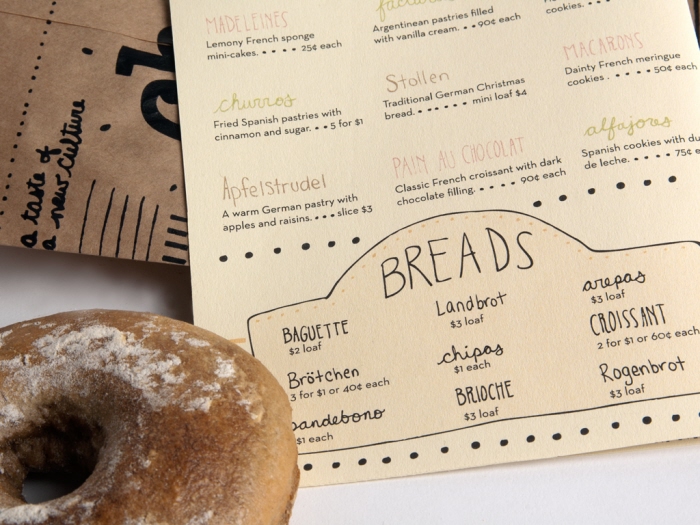 MADELEINES
Lemony French sponge
mini-cakes. . . . . 25¢ each
facturas
Argentinean pastries filled
with vanilla cream. . . 90¢ each
cookies. . . . .
churros
Fried Spanish pastries with
cinnamon and sugar. . . 5 for $1
Stollen
Traditional German Christmas
bread. . . . . . . mini loaf $4
MACARONS
Dainty French meringue
cookies . . . . . . 50¢ each
Apfelstrudel
A warm German pastry with
apples and raisins. . . . slice $3
PAIN AU CHOCOLAT
Classic French croissant with dark
chocolate filling. . . . . . 90¢ each
alfajores
Spanish cookies with du
de leche. . . . . . 75¢
BREADS
BAGUETTE
$2 loaf
Landbrot
$3 loaf
arepas
$3 loaf
Brötchen
3 for $1 or 40¢ each
chipas
$1 each
CROISSANT
2 for $1 or 60¢ each
pandebono
$1 each
BRIOCHE
$3 loaf
Rogenbrot
$3 loaf
a taste of
a new culture